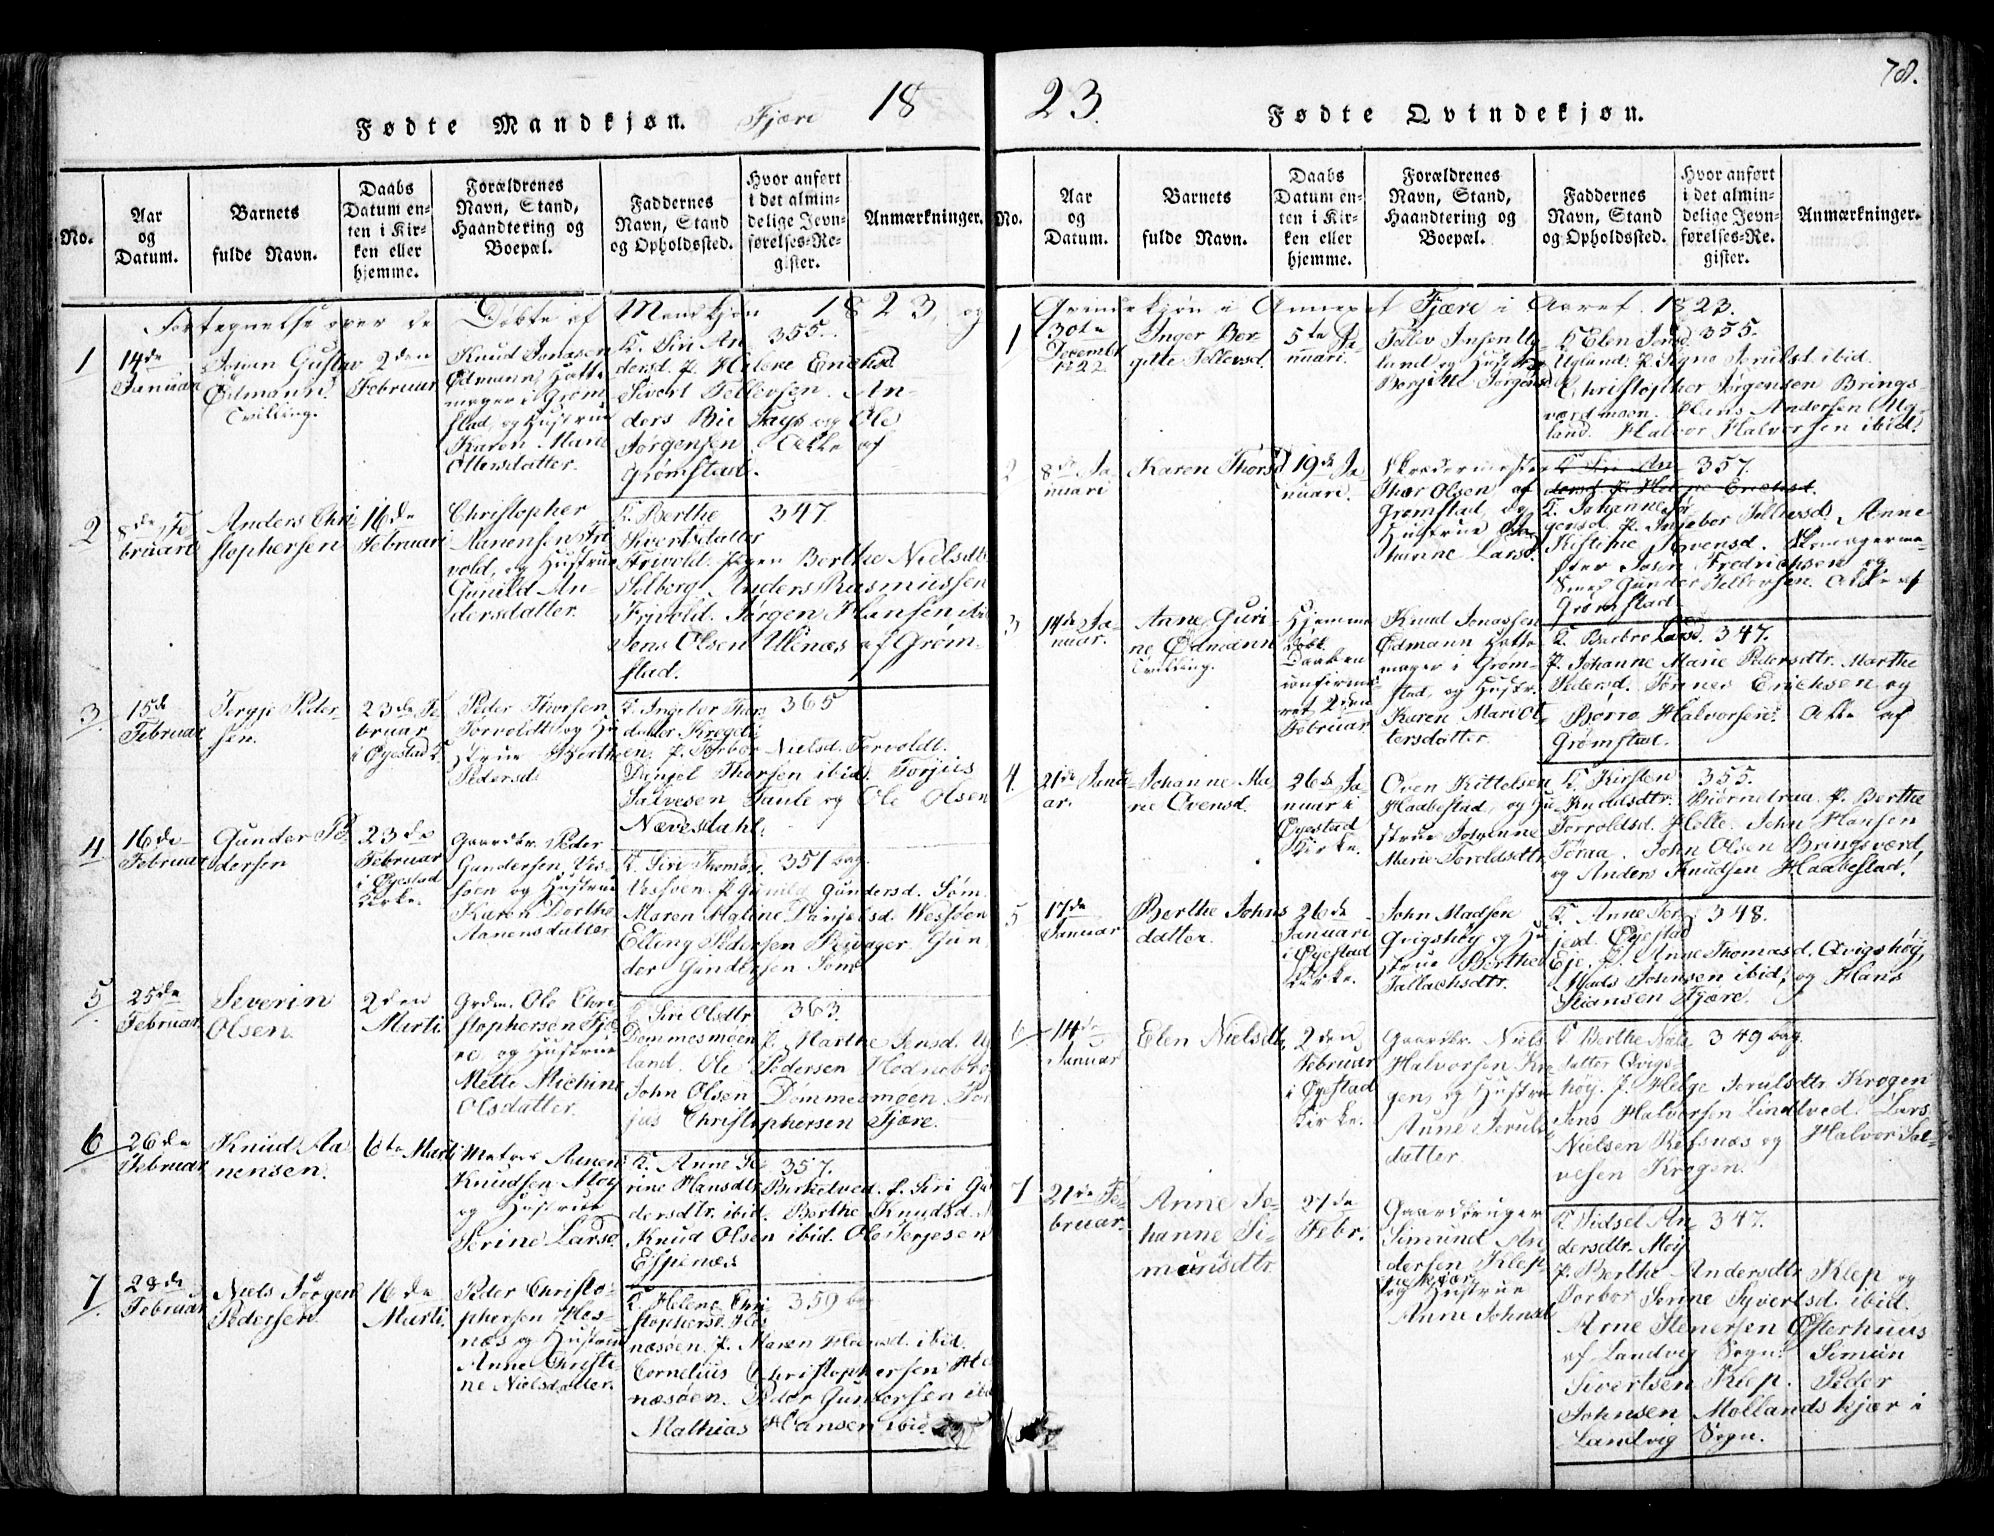 78.
Fødte Mandkjøn. Fjære 18
23. Fødte Qvindekjøn.
No.
Aar
og
Datum.
Barnets
fulde Navn.
Daabs
Datum en-
ten i Kir-
ken eller
hjemme.
Forældrenes
Navn, Stand,
Haandtering og
Boepæl.
Faddernes
Navn, Stand
og Opholdssted.
Hvor anført
i det almin-
delige Jevn-
førelses-Re-
gister.
Anmærkninger.
Fortegnelse over de Døbte af Mandkjøn 1823 og
1
14de
Januar
Johan Gustav
Ødmann.
Tvilling.
2den
Februar
Knud Jonasen
Ødmann, Hatte-
mager i Grøm-
stad, og Hustrue
Karen Marie
Ottersdatter.
K. Siri An- 355.
dersd. P. Helene Erichsd.
Sivert Tellefsen. An-
ders Bie Fays og Ole
Jørgensen. Alle af
Grømstad.
2
8de Fe-
bruari
Anders Chri-
stophersen
16de
Februari
Christopher
Aanonsen Fri-
vold, og Hustrue
Gunild An-
dersdatter.
K. Berthe 347.
Sivertsdatter
Frivold. Pigen Berthe Nielsdtr
Solberg. Anders Rasmussen
Frivold. Jørgen Hansen ibid
Jens Olsen Ullenæs af Grøm-
stad.
3
15de
Februar
Tergje Peder-
sen.
23de Fe-
bruar
i Øyestad K.
Peder Thorsen
Torvoldt og Hu-
strue Berthe
Pedersd.
K. Ingebor Thors- 365
datter
P. Torbor Nielsd. Torvoldt.
Daniel Thorsen ibid. Torjus
Salvesen Taule og Ole Olsen
Nævesdahl.
4
16de
Februar
Gunder Pe-
dersen
23de
Februar
i Øyestad
Kirke.
Gaardbr. Peder
Gundersen Ves-
søen og Hustrue
Karen Dorthe
Aanensdatter.
K. Siri Thomæs. 351 bag.
Vessøen P. Gunild Gundersd. Søm.
Maren Maline Danjelsd. Wessøen
Elling Pedersen Rivager. Gun-
der Gundersen Søm
5
25de
Februar.
Severin
Olsen.
2den
Marti
Grdm. Ole Chri-
stophersen Fjæ-
re, og Hustrue
Mette Michine
Olsdatter.
K. Siri Olsdtr 363.
Dømmesmøen P. Marthe Jensd. Ug-
land. Ole Pedersen Hodnebro
John Olsen Dømmesmøen. Tor-
jus Christophersen Fjære.
6
26de
Februar
Knud Aa-
nensen.
6te Marti
Matros Aanen
Knudsen Moy
og Hustrue
Serine Larsd.
K. Anne Se- 357.
rine Hansdtr Birketved. P. Siri Gun-
dersdtr. ibid. Berthe Knudsd.
Knud Olsen ibid. Ole Terjesen
Espenæs
7
28de
Februar
Niels Jørgen
Pedersen.
16de
Marti.
Peder Christo-
phersen Hes-
næs og Hustrue
Anne Christi-
ne Nielsdatter.
K. Helene Chri- 359 bag
stophersd. Hes-
næsøen. P. Maren ibid.
Cornelius Christophersen Hes-
næsøen. Peder Gundersen ibid
Mathias Hansen ibid
No.
Aar
og
Datum.
Barnets
fulde Navn.
Daabs
Datum en-
ten i Kir-
ken eller
hjemme.
Forældrenes
Navn, Stand,
Haandtering og
Boepæl.
Faddernes
Navn, Stand
og Opholdssted.
Hvor anført
i det almin-
delige Jevn-
førelses-Re-
gister.
Anmærkninger.
Qvindekjøn i Annexet Fjære i Aaret 1823.
1
30te
Decembr
1822
Inger Ber-
gitte Tellevsd.
5te Ja-
nuari.
Tellev Jensen Ug-
land og Hustrue
Borgitte Jørgensd.
K. Elen Jensd. 355.
Ugland. P. Signe Jerulsd. ibid.
Christopher Jørgensen Brings-
værdmoen. Hans Andersen Ug-
land. Halvor Halvorsen ibid
2
8de Ja-
nuari
Karen Thorsd.
19de Ja-
nuari.
Skrædermester
Thor Olsen af
Grømstad, og
Hustrue
Hanne Larsd.
K. Siri An- 357.
dersd. P. Helene Erichsd.
K. Johanne Jør-
gensd. P. Ingebor Tellevsd. Anne
Kistine Svensd. Skomagerme-
ster Johan Fredrichsen og
Smed Gunder Tellevsen. Alle af
Grømstad.
3
14de Ja-
nuar.
Anne Guri-
ne Ødmann
Tvilling.
Hjemme
døbt.
Daaben
confirme-
ret 2den
Februar
Knud Jonassen
Ødmann Hatte-
mager i Grøm-
stad, og Hustr.
Karen Marie Ot-
tersdatter.
K. Barbro Larsd. 347.
P. Johanne Marie Pedersdtr. Marthe
Pedersd. Tønnes Erichsen og
Bjørro Halvorsen. Alle af
Grømstad.
4.
21de Janu-
ar.
Johanne Ma-
rie Ovensd.
26de Ja-
nuar i
Øyestad
Kirke.
Oven Kittelsen
Haabestad, og Hu-
strue Johanne
Marie Toroldsdtr.
K. Kirsten 355.
Knudsdtr. Bjørnetraa. P. Berthe
Torroldsd. Helle. John Hansen
Føraa. John Olsen Bringsværd
og Anders Knudsen Haabestad.
5
17de
Januar
Berthe Johns-
datter.
26de
Januari
i Øyestad
Kirke.
John Madsen
Qvigshøy og Hu-
strue Berthe
Tallachsdtr.
K. Anne Ter- 348.
jesd. Øyestad
Eje. P. Anne Thomasd. Qvigshøy,
Mads Johnsen ibid, og Hans
Stiansen Fjære.
6
14de
Januar
Elen Nielsdtr.
2den
Februar
i Øyestad
Kirke.
Gaardbr. Niels
Halvorsen Kro-
gen, og Hustrue
Anne Jeruls-
datter
K. Berthe Niels- 349 bag.
datter Qvigs-
høy. P. Helge Jerulsdtr. Krogen
Jens Halvorsen Lindtved. Lars
Nielsen Refsnæs og Halvor Sal-
vesen Krogen.
7
21de Fe-
bruar.
Anne Jo-
hanne Si-
munsdtr.
27de
Febr.
Gaardbruger
Simund An-
dersen Klep-
pekjær
og Hustrue
Anne Johnsd.
K. Sidsel An- 347.
dersdtr. Moy
P. Berthe Andersdtr. Klep og
Torbor Serine Syvertsd. ibid.
Arne Stenersen Østerhuus
af Landvig Sogn. Simun
Sivertsen Klep. Peder
Johnsen Mollandskjær i
Landvig Sogn.